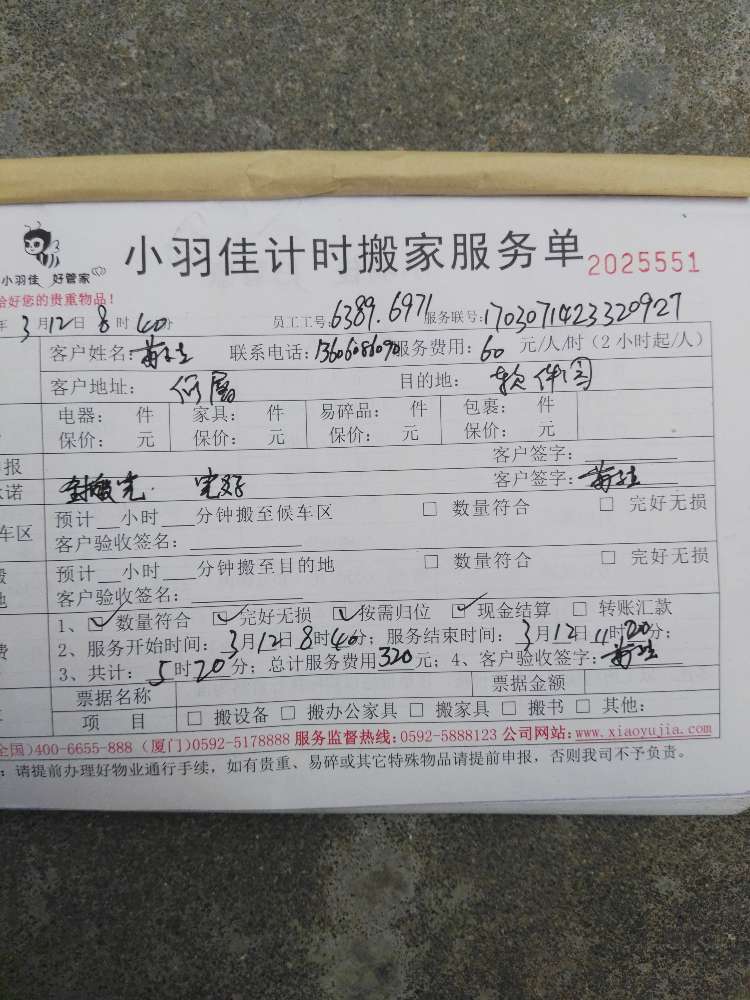 小羽佳计时搬家服务单 2025551
小羽佳 好管家
好您的贵重物品!
3月12日8时40分 员工工号:6389.6971 服务联号:1703071423320927
客户姓名: 联系电话: 服务费用:60 元/人/时(2小时起/人)
客户地址:何厝 目的地:软件园
电器: 件 家具: 件 易碎品: 件 包裹: 件
保价: 元 保价: 元 保价: 元 保价: 元
报 客户签字:
诺 完好 客户签字:
车区 预计__小时___分钟搬至候车区 □ 数量符合 □ 完好无损
客户验收签名:
预计__小时___分钟搬至目的地 □ 数量符合 □ 完好无损
地 客户验收签名:
1、☑数量符合 ☑完好无损 ☑按需归位 ☑现金结算 □ 转账汇款
2、服务开始时间:3月12日8时40分; 服务结束时间:3月12日11时20分;
费 3、共计:5时20分; 总计服务费用320元; 4、客户验收签字:
票据名称 票据金额
项 目 □ 搬设备 □ 搬办公家具 □ 搬家具 □ 搬书 □ 其他:
全国)400-6655-888 (厦门)0592-5178888 服务监督热线:0592-5888123 公司网站:www.xiaoyujia.com
:请提前办理好物业通行手续,如有贵重、易碎或其它特殊物品请提前申报,否则我司不予负责。